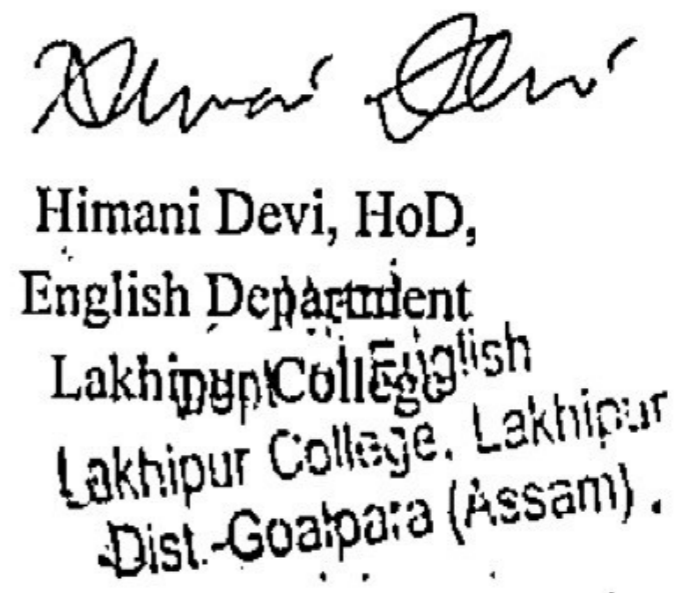 Himani Devi
Himani Devi, HoD,
English Department
Lakhipur College
Dept. of English
Lakhipur College, Lakhipur
Dist.-Goalpara (Assam).